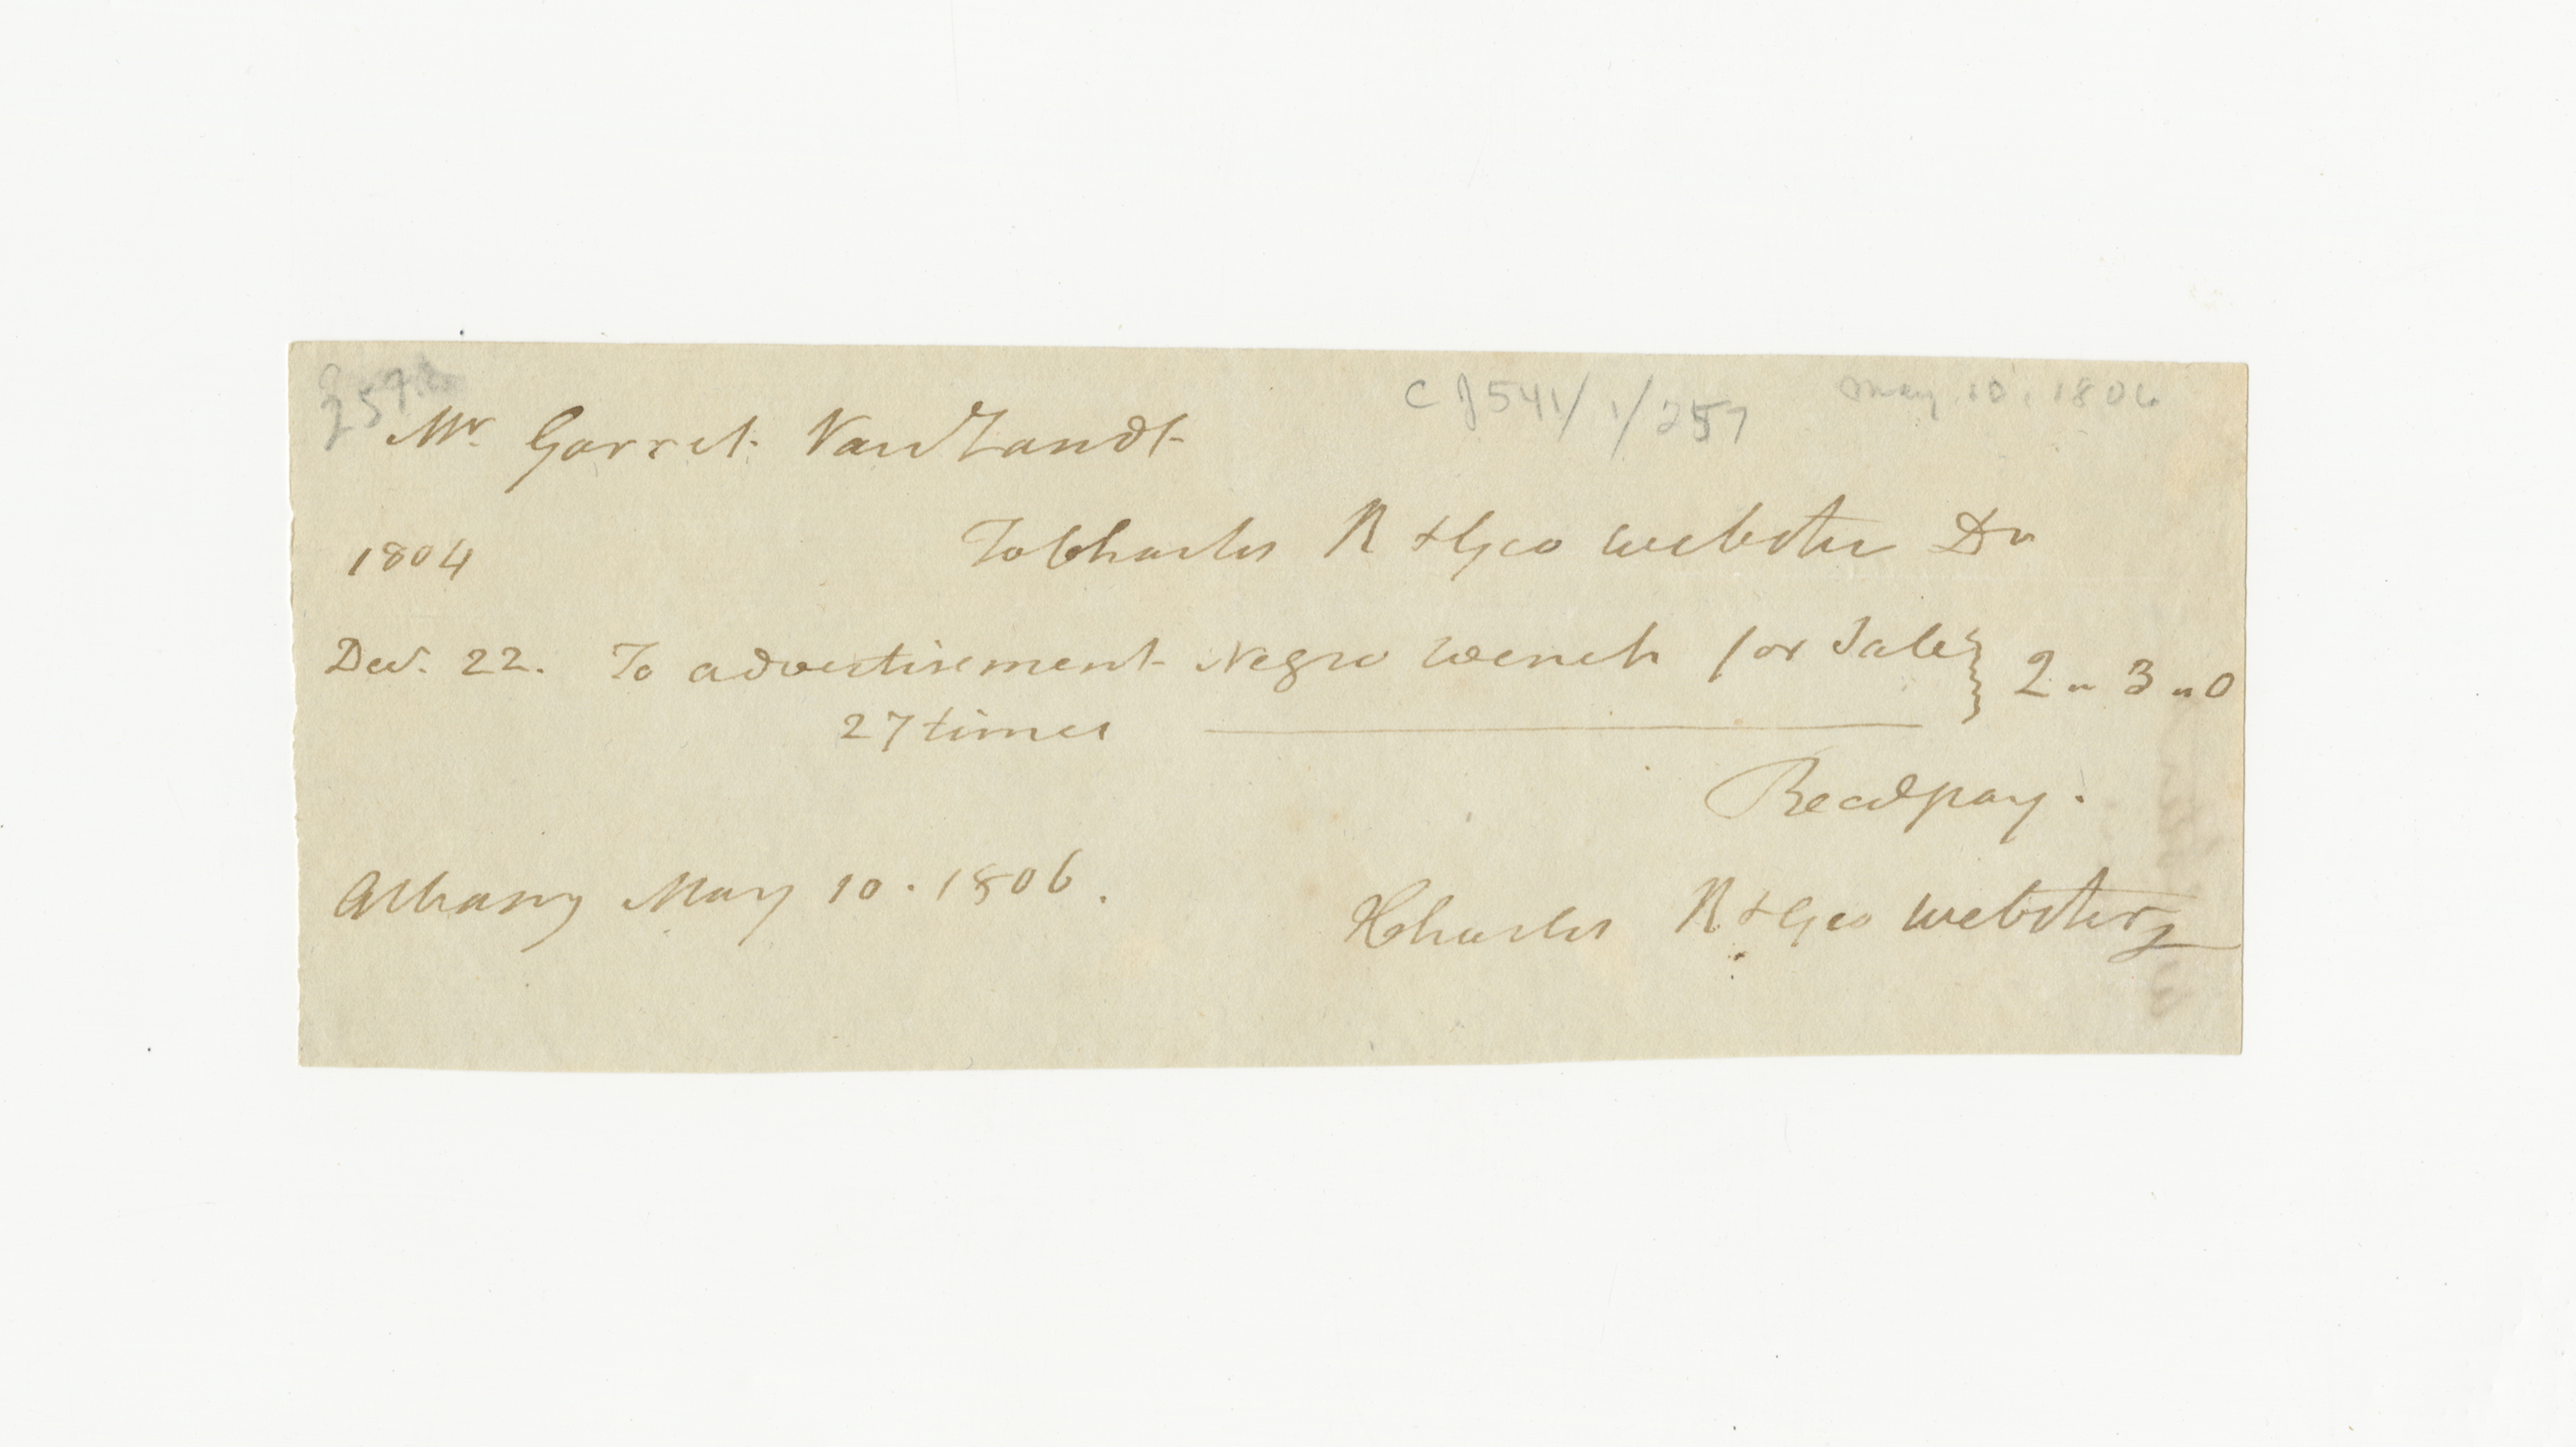 257
CJ541/1/257
May 10, 1806
Mr Garret VanZandt
1804 To Charles R & Geo Webster Dr
Dec. 22. To advertisement Negro Wench for Sale } 2 " 3 " 0
27 times
Recd pay.
Albany May 10. 1806.
Charles R & Geo Webster